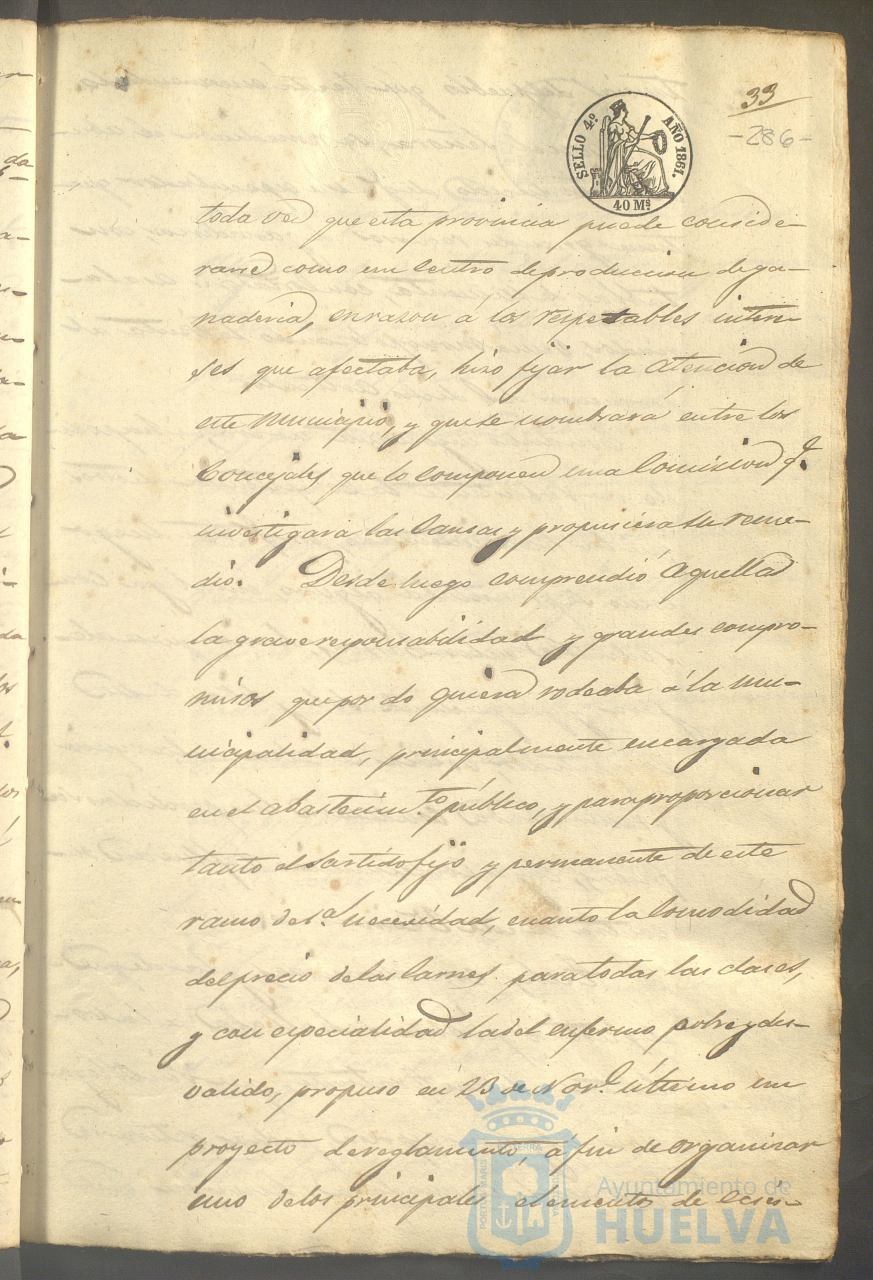 33
-286-
SELLO 4º AÑO 1861.
40 Mˢ
toda vez que esta provincia puede conside-
rarse como un centro de produccion de ga-
naderia, en razon á los respetables intere-
ses que afectaba, hizo fijar la atencion de
este Municipio, y que se nombrará entre los
Concejales que lo componen una Comision qᵉ
investigara las causas y propusiera su reme-
dio. Desde luego comprendió aquella
la grave responsabilidad y grandes compro-
misos que por do quiera rodeaba á la mu-
nicipalidad, principalmente encargada
en el abastecimᵗᵒ público, y para proporcionar
tanto el surtido fijo y permanente de este
ramo de 1ª necesidad, cuanto la comodidad
del precio de las carnes para todas las clases,
y con especialidad la del enfermo pobre y des-
valido, propuso en 23 de Novᵉ último un
proyecto de reglamento, á fin de organizar
uno de los principales elementos de
Ayuntamiento de
HUELVA